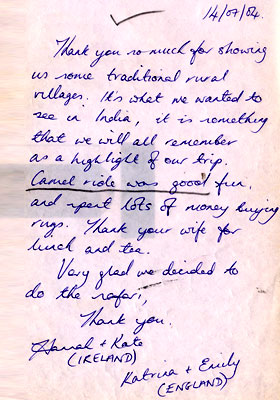 14/07/04.
Thank you so much for showing
us some traditional rural
villages. It's what we wanted to
see in India, it is something
that we will all remember
as a highlight of our trip.
Camel ride was good fun.
and spent lots of money buying
rugs. Thank your wife for
lunch and tea.
Very glad we decided to
do the safari,
Thank you.
Hannah + Kate
(IRELAND)
Katrina + Emily
(ENGLAND)